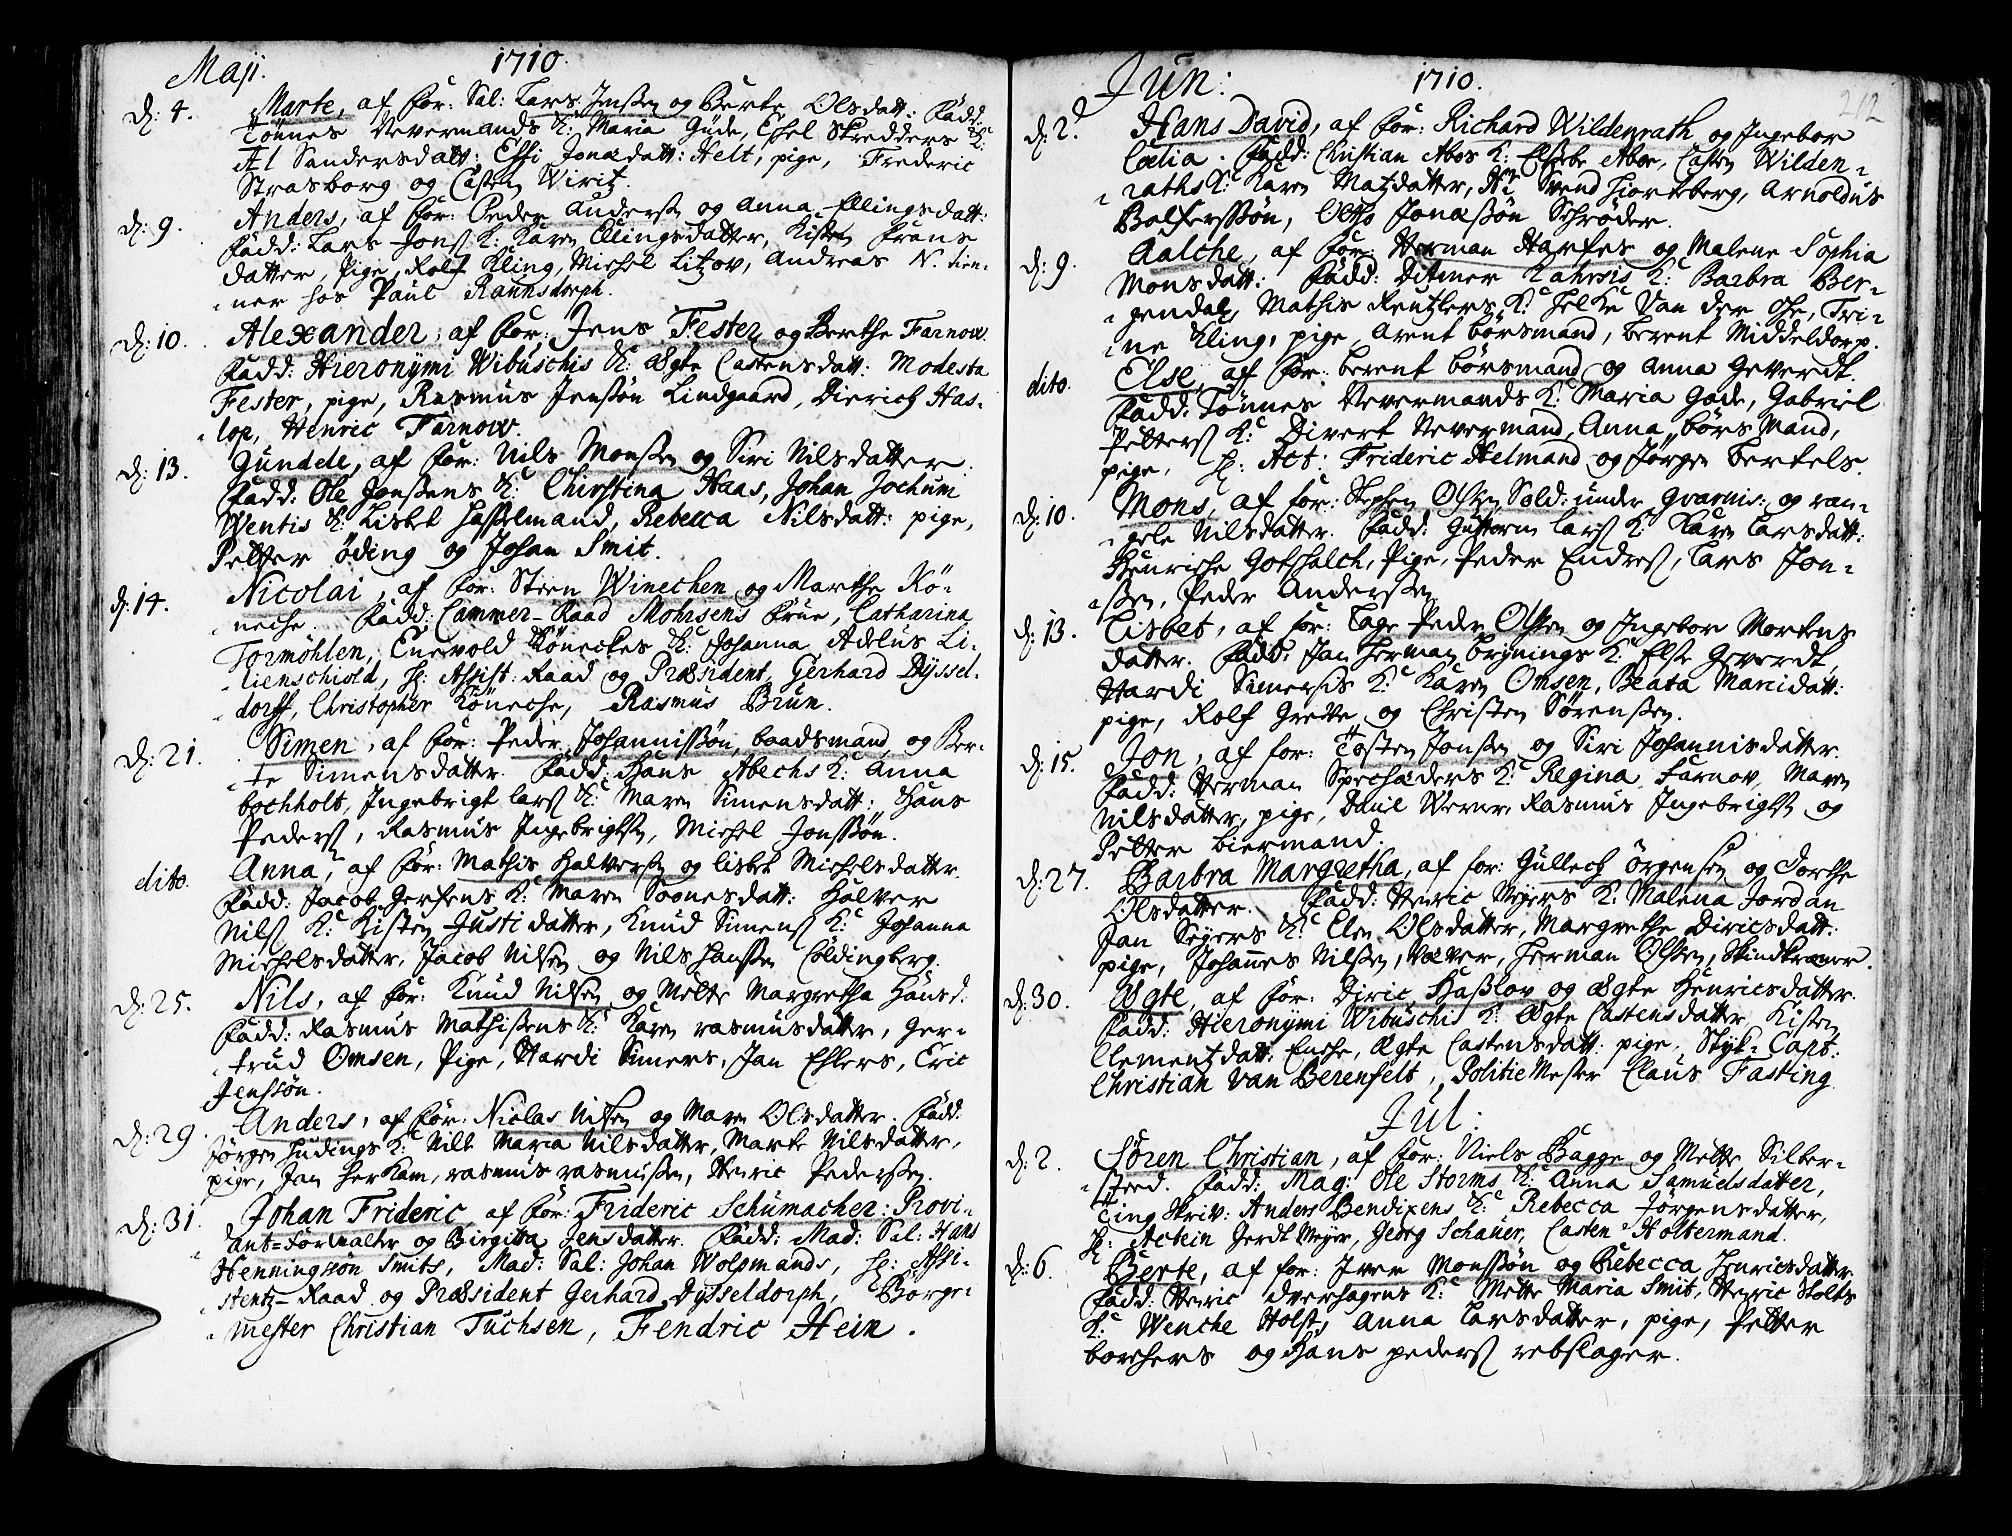 Maji. 1710.
d: 4. Marte, af for: Sal: Lars Jenssen og Berte Olsdatt: Fadd:
Tönnes Nevermands K: Maria Gude, Skredders K:
Al Sandersdatt: Effi Jonædatt: Helt, pige, Frederic
Strasborg og Casten Wiritz.
d: 9. Anders, af for: Peder Anderss og Anna Ellingsdatt:
Fadd: Lars Jons K: Karen Ellingsdatter, Kisten Frans
datter, Pige, Rolf Kling, Michel Litzov, Andreas N. tien-
ner hos Paul Raunsdorph.
d: 10. Alexander, af for: Jens Fester og Berthe Farnow.
Fadd: Hieronymi Wibuschis K: Ægte Castensdatt: Modesta
Fester, pige, Rasmus Jenssön Lindgaard, Dierich Has-
lop, Henric Farnow.
d: 13. Gundele, af for: Nils Monssen og Siri Nilsdatter.
Fadd: Ole Jenssens K: Chirstina Haas, Johan Jochum
Wentis K: Lisbet Hasselmand, Rebecca Nilsdatt: pige,
Petter Öding og Johan Smit.
d: 14. Nicolai, af for: Steen Winechen og Marthe Kö-
neche. Fadd: Cammer-Raad Mohrsens Frue, Catharina
Tormöhlen, Enevold Köneches K: Johanna Adelus Li-
lienschiold, H: Assist: Raad og Præsident Gerhard Dyssel-
dorff, Christopher Köneche, Rasmus Brun.
d: 21. Simen, af for: Peder Johannissön, baadsmand, og Ber-
te Simensdatter. Fadd: Hans Abechs K: Anna
bochholt, Ingebrigt lars K: Maren Simensdatt: Hans
Peders, Rasmus Ingebrigts, Michel Jonssön.
dito. Anna, af for: Mathis Halverss og lisbet Michelsdatter.
Fadd: Jacob Gerkens K: Maren Sognesdatt: Halver
Nils K: Kisten Justi datter, Knud Simens K: Johanna
Michelsdatter, Jacob Nilsen og Nils Hanssen Coldingberg.
d: 25. Nils, af for: Knud Nilsen og Mette Margretha Hansd.
Fadd: Rasmus Mathissens K: Karen rasmusdatter, Ger-
trud Omsen, Pige, Hardi Simers, Jan Ehlers, Eric
Jenssön.
d: 29. Anders, af for: Niclas Nilsen og Maren Olsdatter. Fadd:
Jörgen Hudings K: Nille Maria Nilsdatter, Marte Nilsdatter,
pige, Jan Herkam, rasmus rasmussen, Henric Pederssen.
d: 31. Johan Frideric, af for: Frideric Schumacher: Provi-
ant=Forvalter og Birgitta Jensdatter. Fadd: Mad: Sal: Hans
Henningsön Smits, Mad: Sal: Johan Wolpmands, H: Assi-
stentz-Raad og Præsident Gerhard Dysseldorph, Borge-
mester Christian Tuchsen, Fendric Hein.
Jun: 1710. 212
d: 2. Hans David, af for: Richard Wildenrath og Ingebor
Cœlia. Fadd: Christian Abos K: Elsebe Aboe, Casten Wilden-
raths K: Karen Matzdatter, Hr Svend Hiorteberg, Arnoldus
Bolferssön, Otto Jonæssön Schröder.
d: 9. Aalche, af for: Herman Harkes og Malene Sophia
Monsdatt: Fadd: Ditmer Kahrsis K: Barbra Ber-
gendal, Mathis Reutzlers K: Helke Van der Ohe, Tri-
ne Kling, pige, Arent börsmand, berent Middeldorp.
dito. Else, af for: berent börsmand og Anna Geverdt.
Fadd: Tönnes Nevermands K: Maria Gode, Gabriel
Petters K: Divert Nevermand, Anna börsmand,
pige, H: Act: Frideric Helmand og Jörgen bertels.
d: 10. Mons, af for: Stephen Olsen Sold: under gvarnis: og ran-
gele Nilsdatter. Fadd: Guttorm lars K: Karen Larsdatt:
Henriche Gotschalch, Pige, Peder Endres, Lars Jon-
ssen, Peder Anderssen.
d: 13. Lisbet, af for: Tage Peder Olssen og Ingebor Mortens
datter. Fadd: Jan Herman brynings K: Else Geverdt,
Hardi Simersis K: Karen Omsen, Beata Marcidatt:
pige, Rolf Grette og Christen Sörenssen.
d: 15. Jon, af for: Tosten Jonssen og Siri Johannisdatter.
Fadd: Herman Spechæders K: Regina Farnov, Maren
Nilsdatter, pige, Paul Werner, Rasmus Ingebrigts og
Petter biermand.
d: 27. Barbra Margretha, af for: Gullech Örgensen og Dorthe
Olsdatter. Fadd: Henric Meyers K: Malena Jordan
Jan Seyers K: Elen Olsdatter, Margrethe Diricsdatt:
pige, Johannes Nilssen, Væver, Herman Olssen, Skindkremer.
d: 30. Ægte, af for: Diric Hasslov og Ægte Henricsdatter.
Fadd: Hieronymi Wibuschis K: Ægte Castensdatter, Kisten
Clementzdatt: Enche, Ægte Castensdatt: pige, Styk=Capt:
Christian van Berenfelt, PolitieMester Claus Fasting.
Jul:
d: 2. Sören Christian, af for: Niels Bagge og Mette Silber-
steed. Fadd: Mag: Ole Storms K: Anna Samuelsdatter,
Ting Skriv: Anders Bendixens K: Rebecca Jörgensdatter,
H: Actein Gerdt Meyer, Georg Schauer, Casten Holtermand.
d: 6. Berte, af for: Iven Monssön og Rebecca Henricsdatter
Fadd: Henric Dverhagens K: Mette Maria Smit, Henric Holts
K: Wenche Holst, Anna Larsdatter, pige, Petter
borchers og Hans peders rebslager.